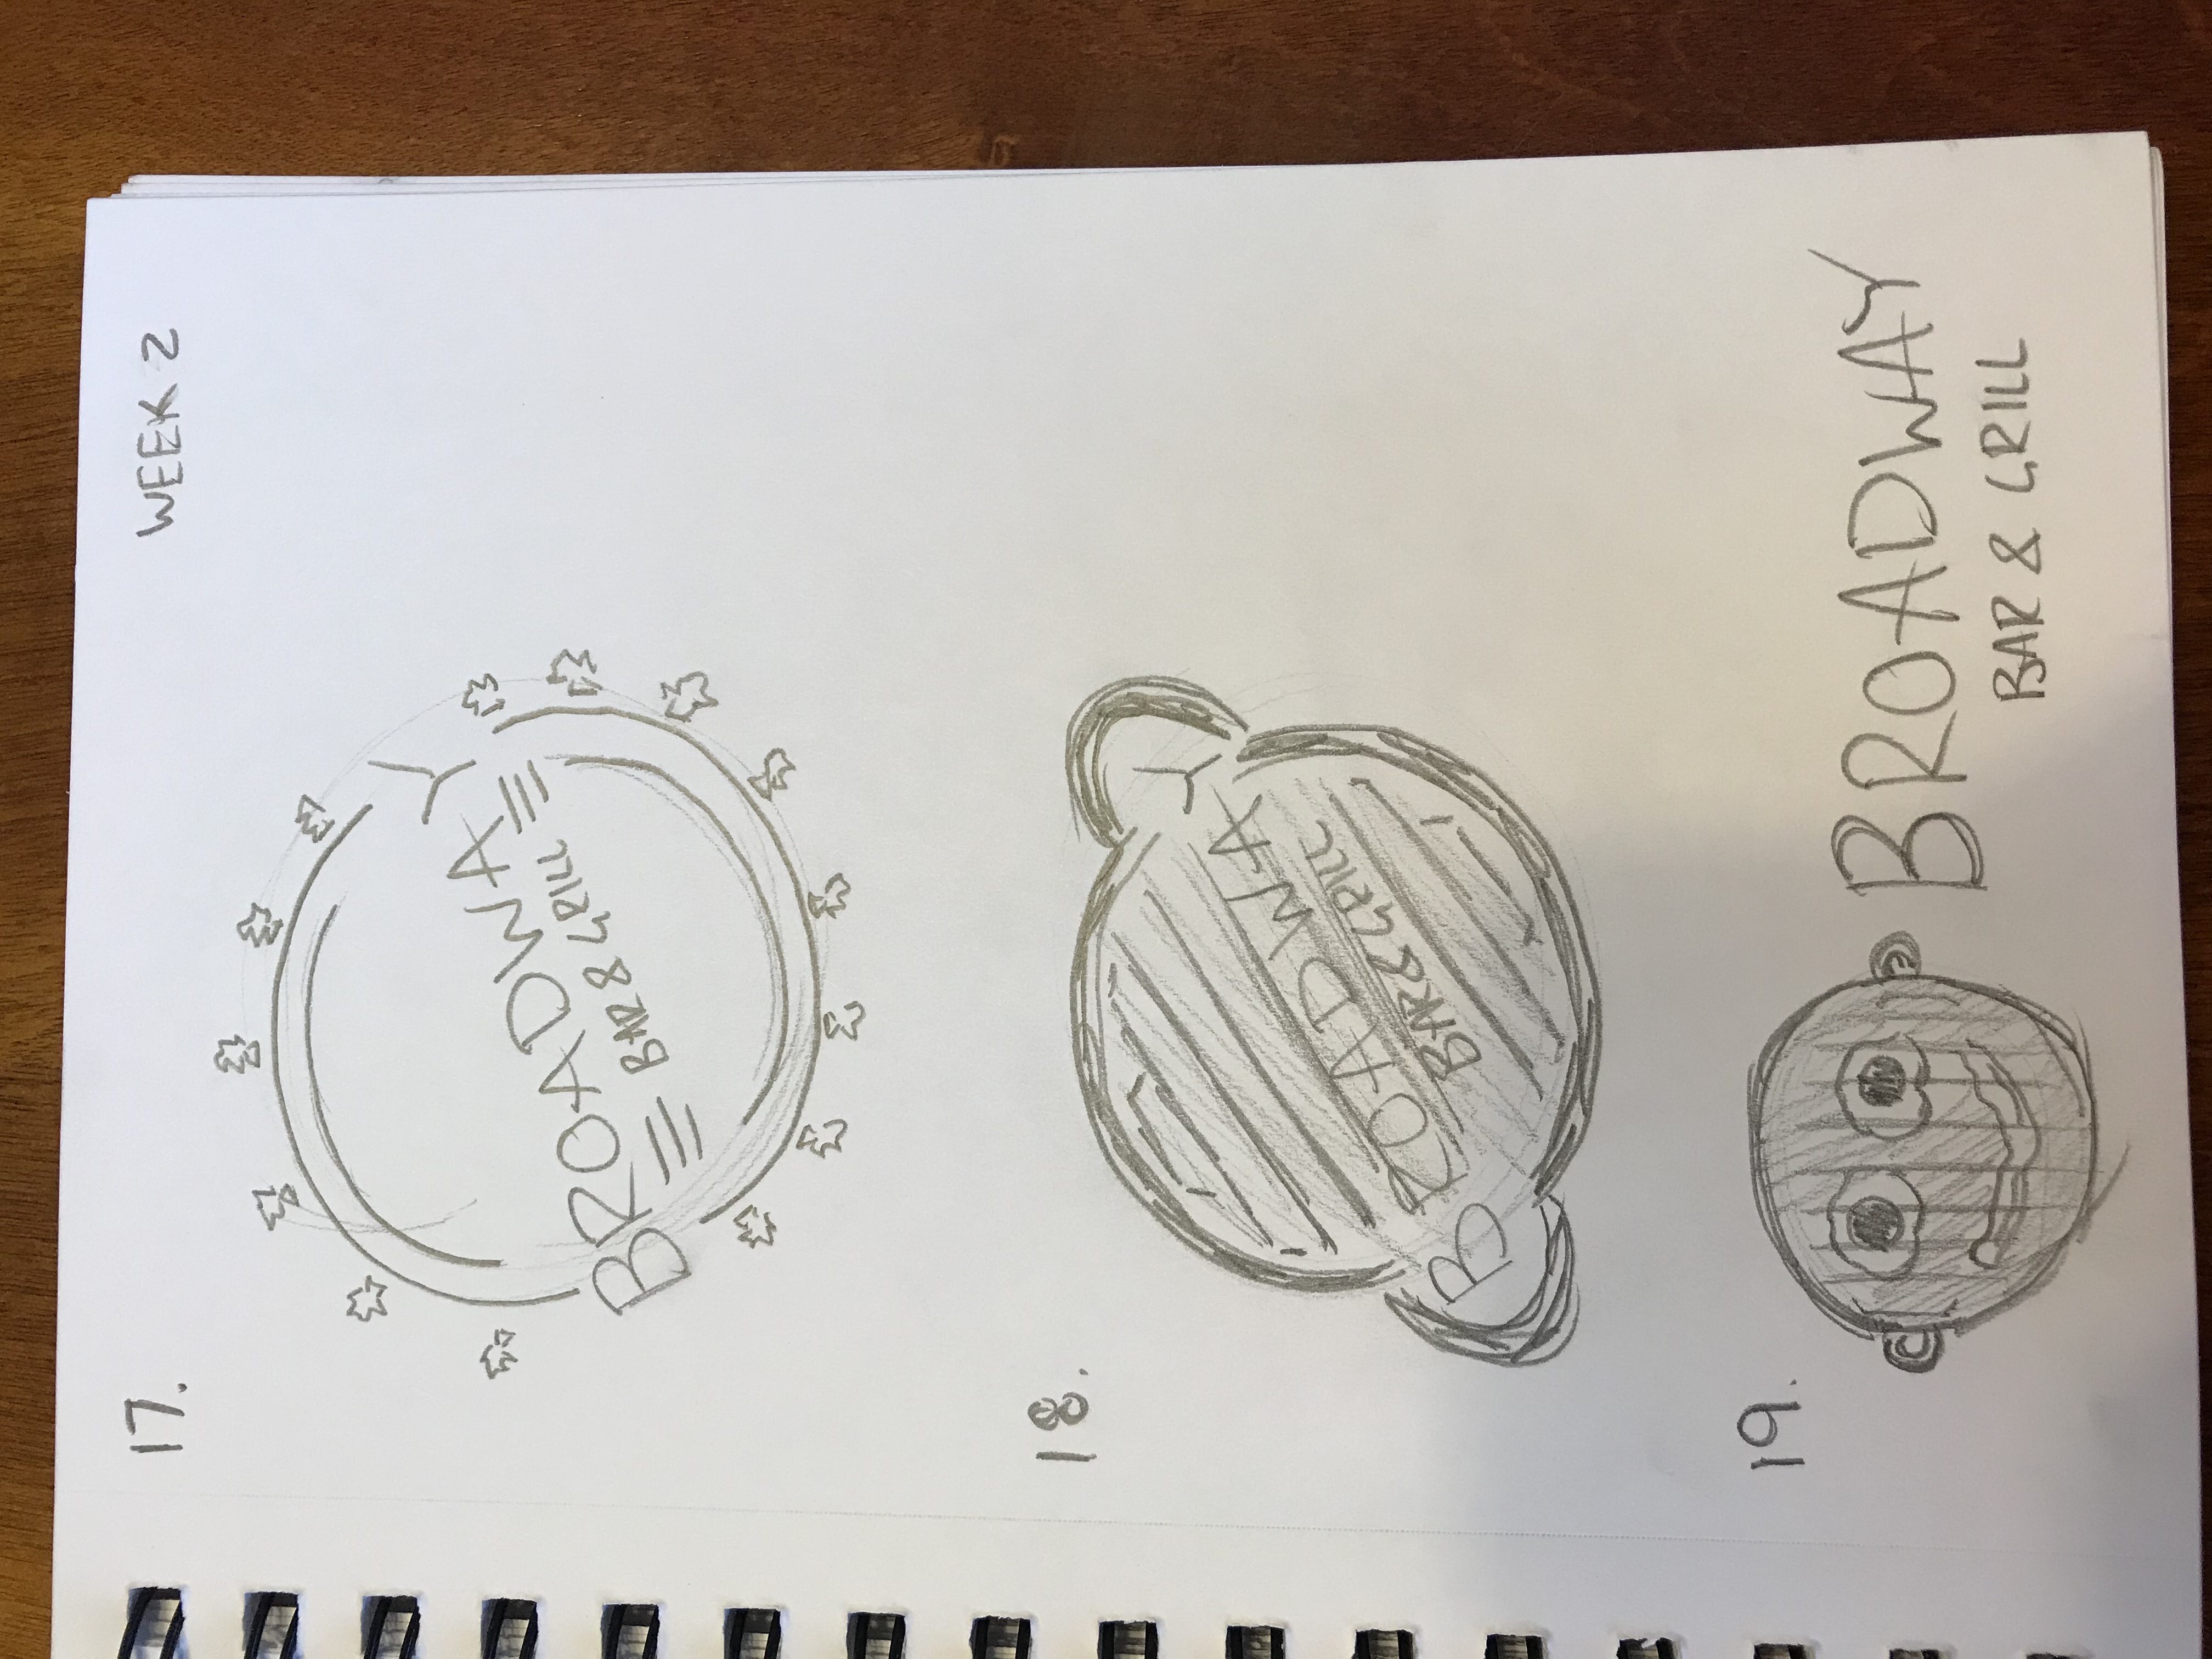 17.
WEEK 2
BROADWAY
BAR & GRILL
18.
BROADWAY
BAR & GRILL
19.
BROADWAY
BAR & GRILL